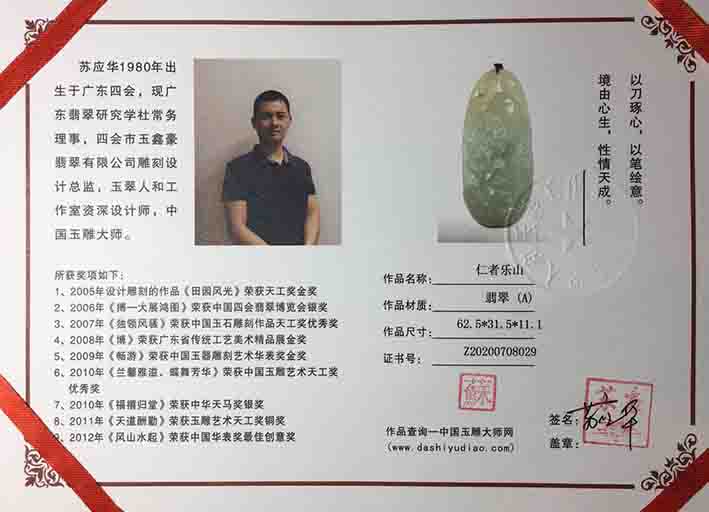 苏应华1980年出
生于广东四会，现广
东翡翠研究学杜常务
理事，四会市玉鑫豪
翡翠有限公司雕刻设
计总监，玉翠人和工
作室资深设计师，中
国玉雕大师。
所获奖项如下：
1、2005年设计雕刻的作品《田园风光》荣获天工奖金奖
2、2006年《搏一大展鸿图》荣获中国四会翡翠博览会银奖
3、2007年《独领风骚》荣获中国玉石雕刻作品天工奖优秀奖
4、2008年《博》荣获广东省传统工艺美术精品展金奖
5、2009年《畅游》荣获中国玉器雕刻艺术华表奖金奖
6、2010年《兰馨雅溢、蝶舞芳华》荣获中国玉雕艺术天工奖
优秀奖
7、2010年《福禧归堂》荣获中华天马奖银奖
8、2011年《天道酬勤》荣获玉雕艺术天工奖铜奖
9、2012年《风山水起》荣获中国华表奖最佳创意奖
以刀琢心，以笔绘意。
境由心生，性情天成。
作品名称： 仁者乐山
作品材质： 翡翠 (A)
作品尺寸： 62.5*31.5*11.1
证书号： Z20200708029
蘇
作品查询一中国玉雕大师网
(www.dashiyudiao.com)
签名： 苏应华
盖章：